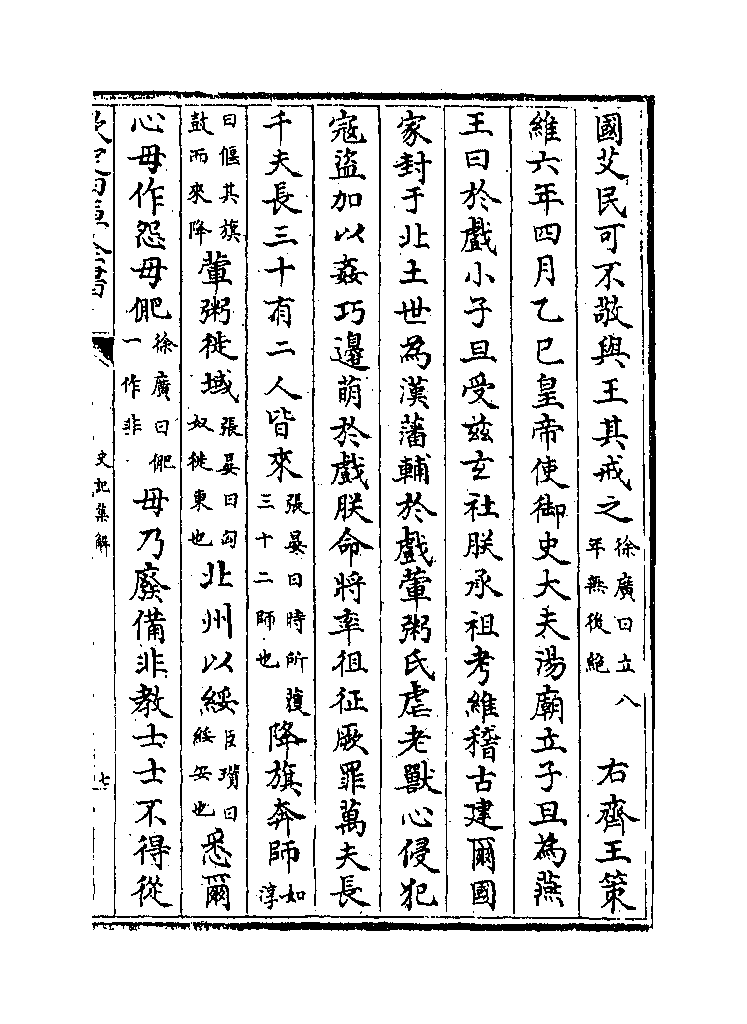 國艾民可不敬與王其戒之徐廣曰立八年無後絶右齊王策
維六年四月乙巳皇帝使御史大夫湯廟立子旦為燕
王曰於戲小子旦受兹玄社朕承祖考維稽古建爾國
家封于北土世為漢藩輔於戲葷粥氏虐老獸心侵犯
寇盜加以姦巧邉萌於戲朕命將率徂征厥罪萬夫長
千夫長三十有二人皆來張晏曰時所獲三十二師也降旗奔師如淳
曰偃其旗鼓而來降葷粥徙域張晏曰匈奴徙東也北州以綏臣瓚曰綏安也悉爾
心毋作怨毋俷徐廣曰俷一作非毋乃廢備非教士士不得從
欽定四庫全書
史記集解
七